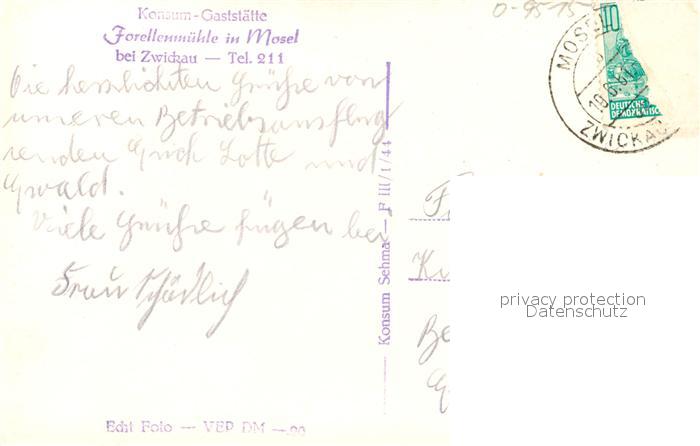 Konsum-Gaststätte
Forellenmühle in Mosel
bei Zwickau — Tel. 211
Die herzlichsten Grüße von
unseren Betriebsausflug
senden Erich Lotte und
Ewald.
Viele Grüße fügen bei
Frau Schädlich
Konsum Sehma — F III/1/44
Echt Foto — VEP DM —.20
0-9515
10
MOSEL
ZWICKAU
DEUTSCHE
DEMOKRATISC
privacy protection
Datenschutz